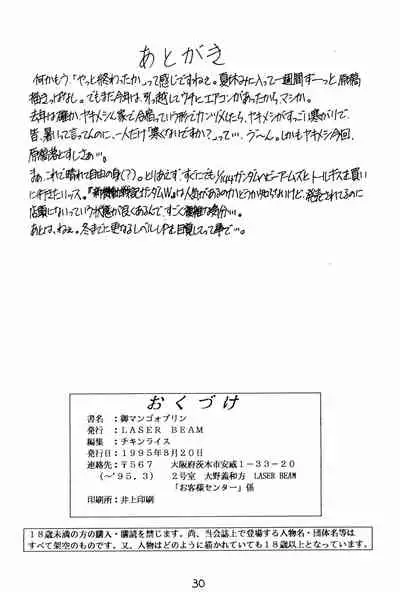 あとがき
何かもう「やっと終わったか」って感じですねぇ。夏休みに入って一週間ずーっと原稿
描きっぱなし。でもまだ今年は、引っ越してウチにエアコンがあったから、マシか。
去年は確か、ヤキメシん家で合宿っていう形でカンヅメしたら、ヤキメシがすっごい寒がりで、
皆、暑いって言ってんのに、一人だけ「寒くないですか?」って…、う〜ん。しかもヤキメシ今回、
原稿落とすしさぁ…。
さぁ、これで晴れて自由の身(?)。とりあえず、すぐにでも1/144ガンダムヘビーアームズとトールギスを買い
に行きたいッス。『新機動戦記ガンダムW』は人気があるのかどうか知らないけど、発売されてるのに
店頭にないっていう状態が良くあるんで、すごく複雑な気分…。
あとは、ねぇ。冬までに更なるレベルUPを目指してって事で…。
おくづけ
書名：御マンゴォプリン
発行：LASER BEAM
編集：チキンライス
発行日：1995年8月20日
連絡先：〒567 大阪府茨木市安威1-33-20
(〜'95.3) 2号室 大野義和方 LASER BEAM
「お客様センター」係
印刷所：井上印刷
18歳未満の方の購入・購読を禁じます。尚、当会誌上で登場する人物名・団体名等は
すべて架空のものです。又、人物はどのように描かれていても18歳以上となっています。
30